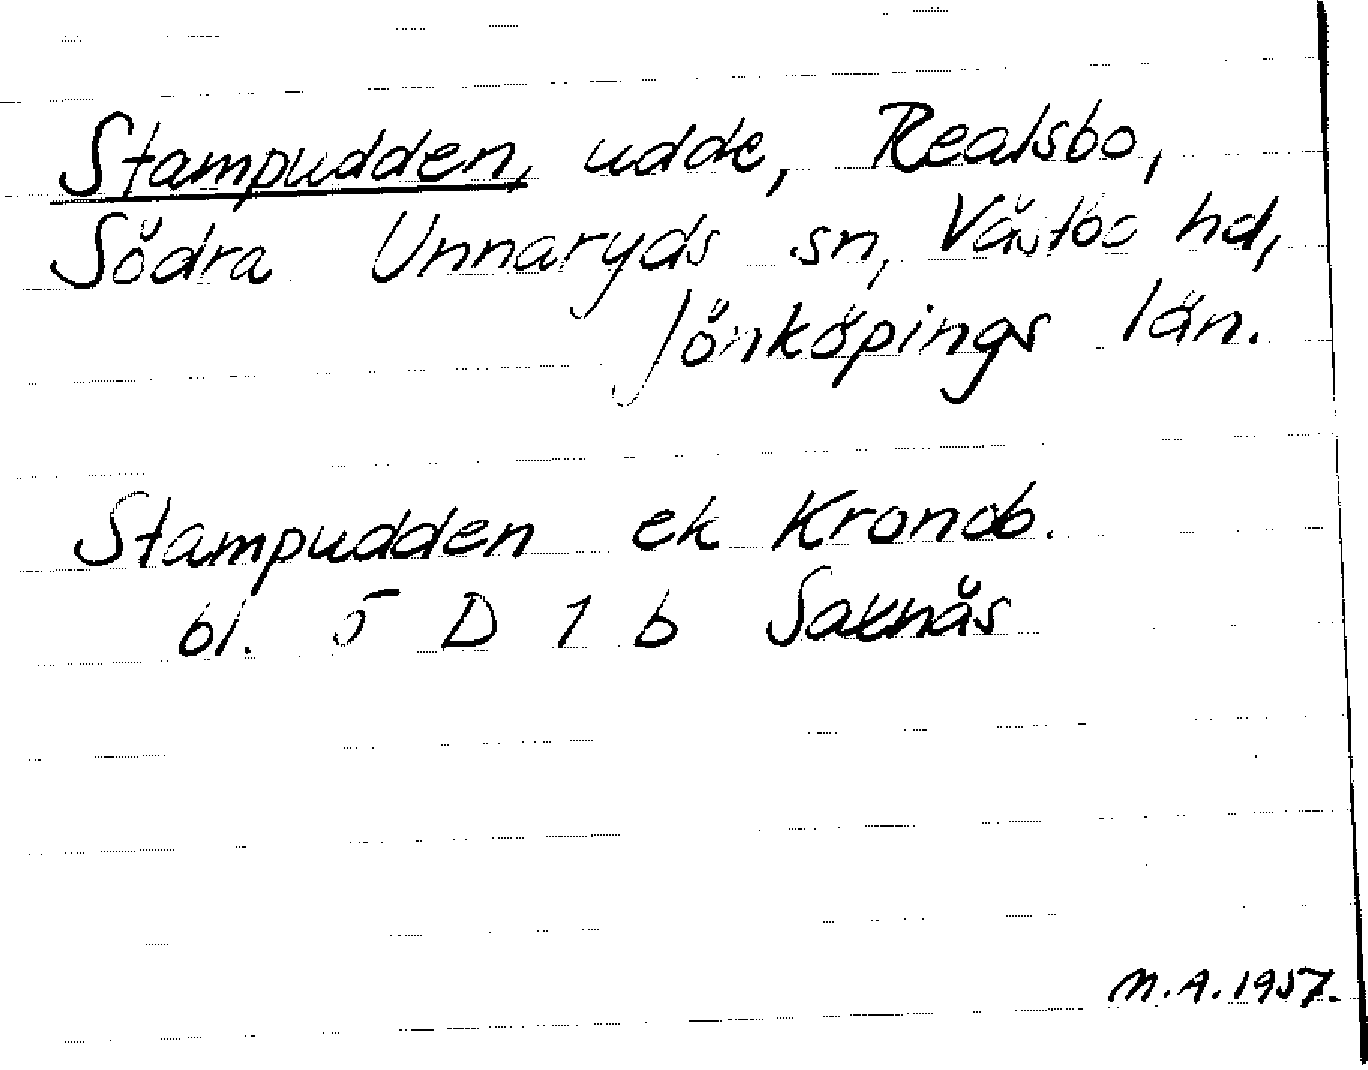 Stampudden, udde, Realsbo,
Södra Unnaryds sn, Västbo hd,
Jönköpings län.
Stampudden ek Kronob.
bl. 5 D 1 b Saknäs
M.A. 1957.